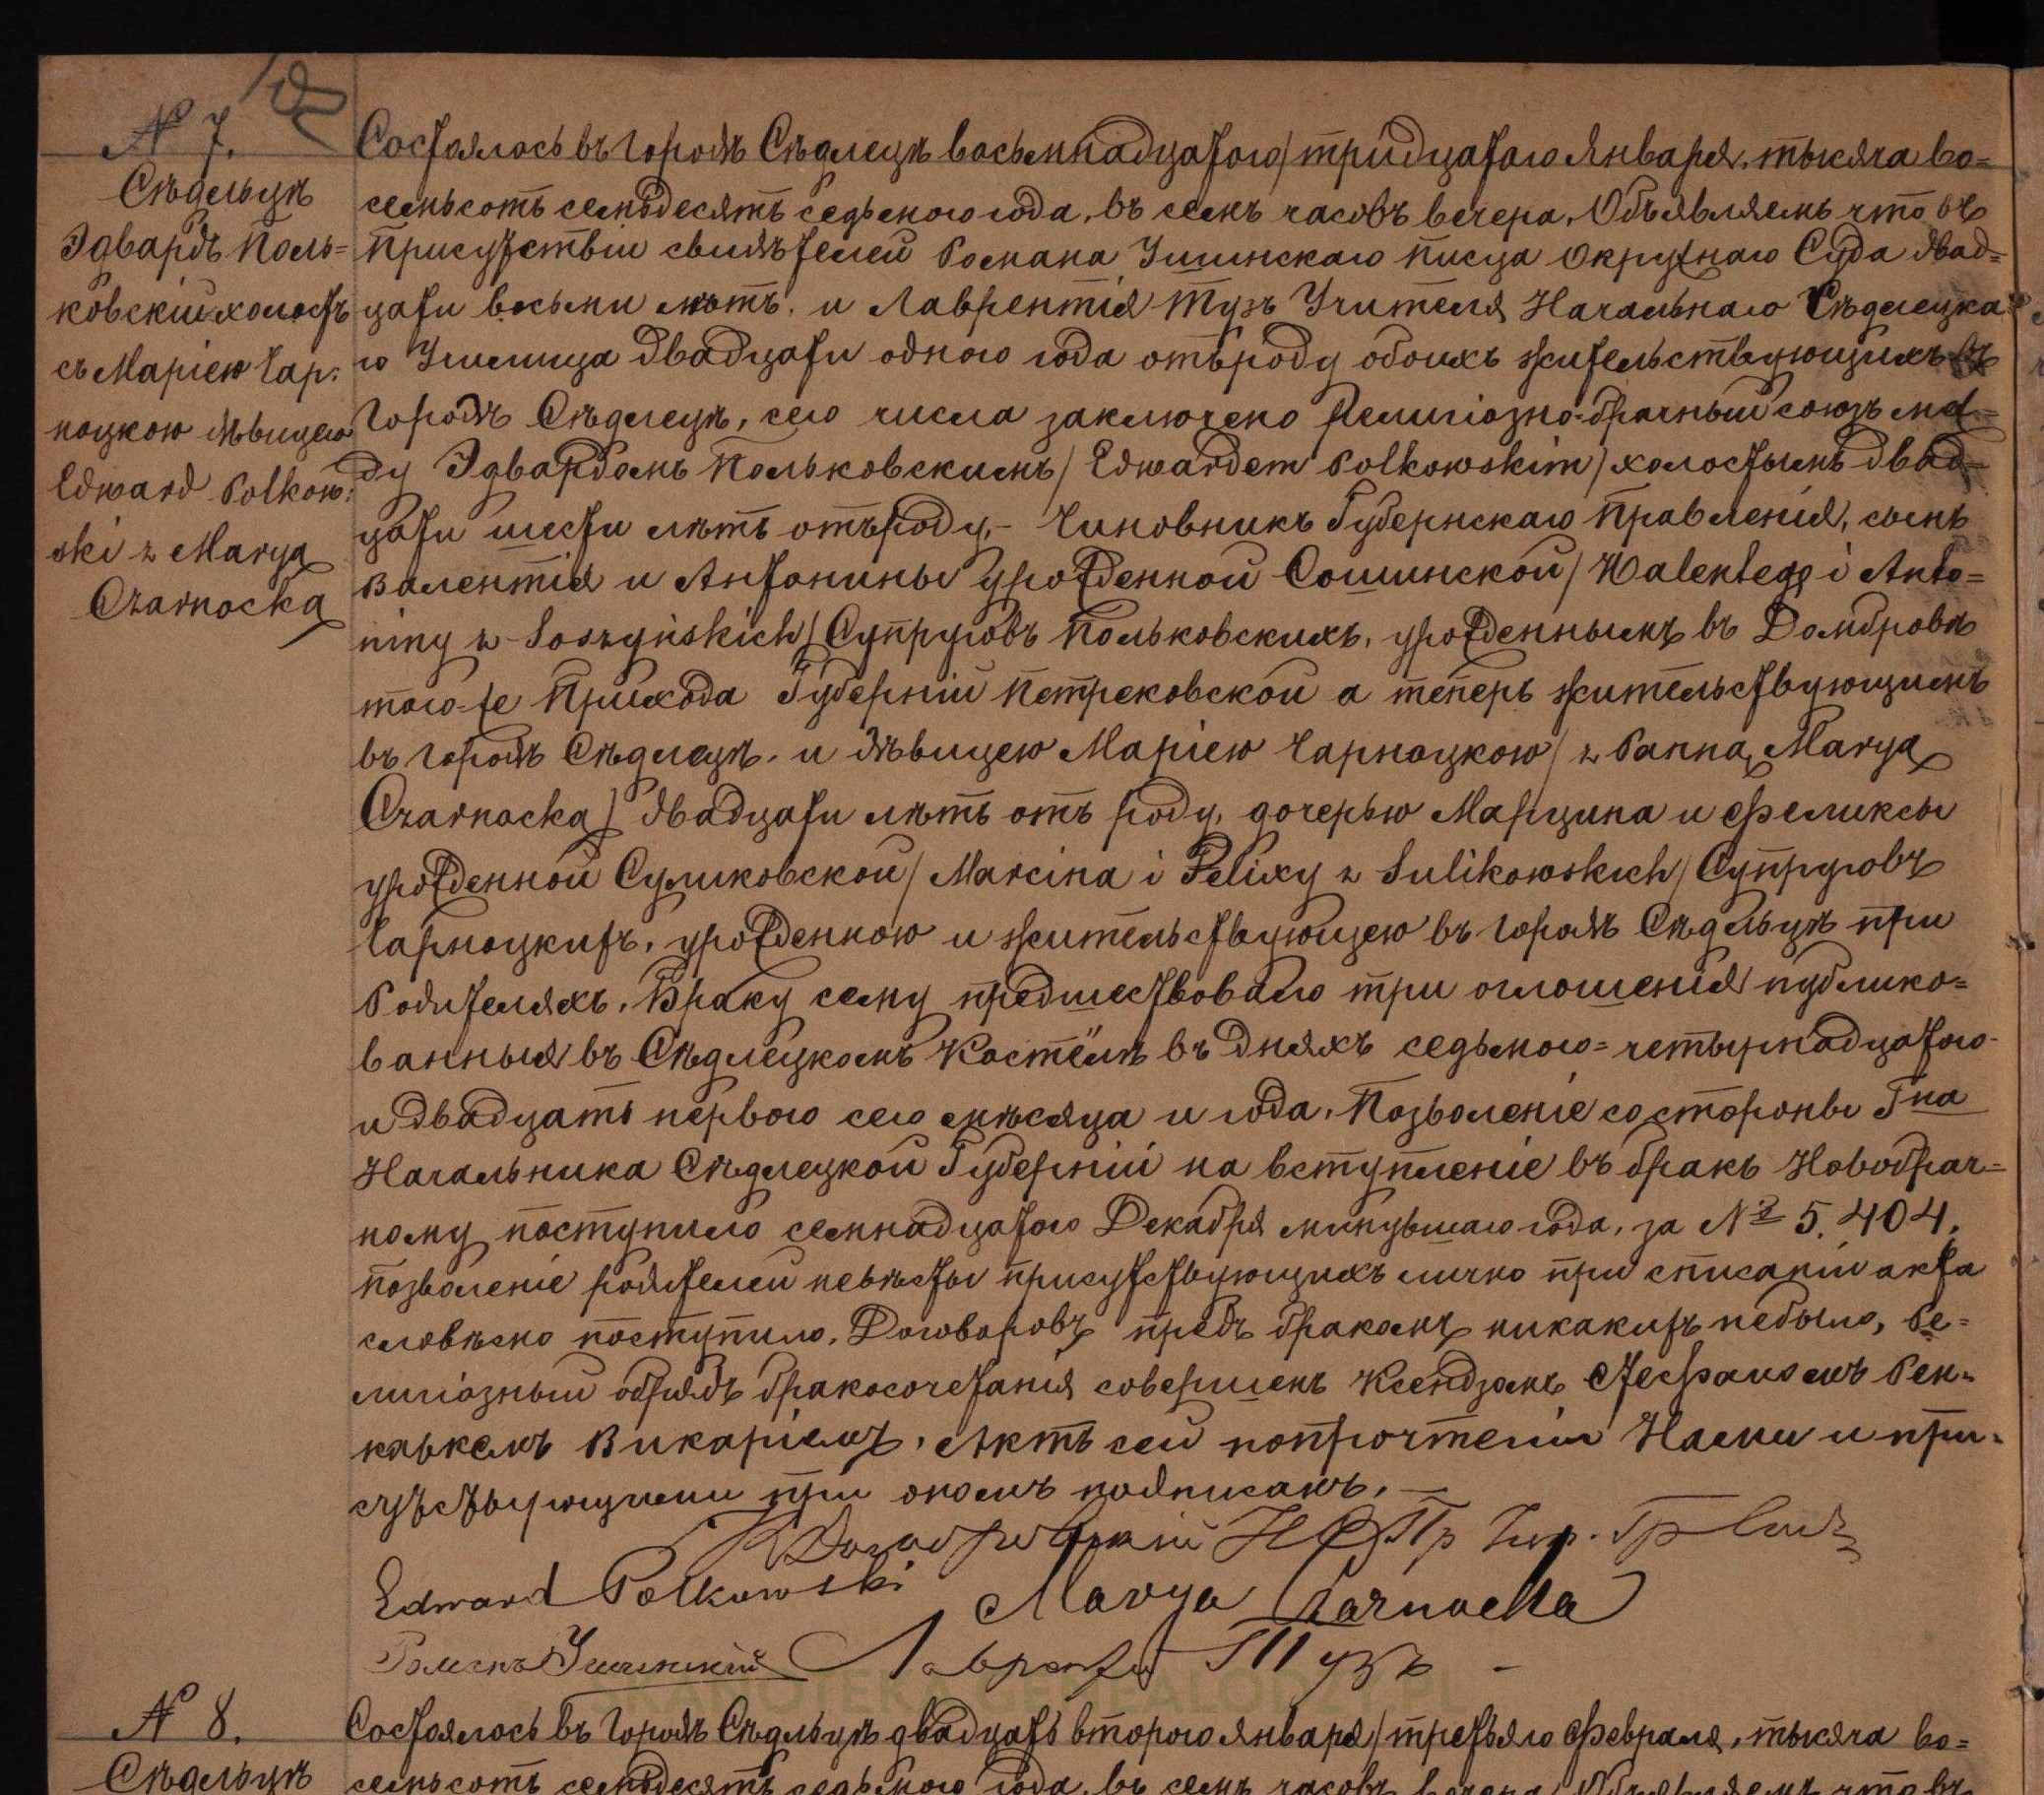 N 7.
Сѣдлецъ
Эдвардъ Поль=
ковскій холостъ
съ Маріею Чар:
ноцкою дѣвицею
Edward Polkow:
ski z Maryą
Czarnocką
Состоялось въ городѣ Сѣдлецѣ восьмнадцатого/тридцатого Января, тысяча во=
семьсотъ семьдесятъ седьмого года, въ семь часовъ вечера. Объявляемъ что въ
присутствіи свидѣтелей Романа Ушинскаго писца Окружнаго Суда двад=
цати восьми лѣтъ, и Лаврентія Тузъ Учителя Начальнаго Сѣдлецка=
го Училища двадцати одного года отъ роду обоихъ жительствующихъ въ
городѣ Сѣдлецѣ, сего числа заключено религіозно-брачный союзъ меж=
ду Эдвардомъ Польковскимъ/Edwardem Polkowskim/холостымъ двад=
цати шести лѣтъ отъ роду,- Чиновникъ Губернскаго Правленія, сынъ
Валентія и Антонины урожденной Сошинской/Walentego i Anto=
niny z Soszyńskich/Супруговъ Польковскихъ, урожденнымъ въ Домбровѣ
того-же Прихода Губерніи Петрековской а теперь жительствующимъ
въ городѣ Сѣдлецѣ, и дѣвицею Маріею Чарноцкою/z Panną Maryą
Czarnocką/ двадцати лѣтъ отъ роду, дочерью Марцина и Феликсы
урожденной Суликовской/Marcina i Felixy z Sulikowskich/Супруговъ
Чарноцкихъ, урожденною и жительствующею въ городѣ Сѣдльцѣ при
Родителяхъ. Браку сему предшествовало три оглошенія публико=
ванныя въ Сѣдлецкомъ Костёлѣ въ дняхъ седьмого= четырнадцатого-
и двадцать первого сего мѣсяца и года. Позволеніе со стороны Гна
Начальника Сѣдлецкой Губерніи на вступленіе въ бракъ Новобрач=
ному поступило семнадцатого Декабря минувшаго года, за № 5.404.
позволеніе родителей невѣсты присутствующихъ лично при списаніи акта
словѣсно поступило. Договоровъ предъ бракомъ никакихъ небыло, Ре=
лигіозный обрядъ бракосочетанія совершенъ Ксендзомъ Стефаномъ
Викаріемъ. Актъ сей по прочтеніи Нами и при=
сутствующими при ономъ подписанъ.—
Edward Polkowski Marya Czarnocka
Романъ Ушинскій Лаврентій Тузъ -
N 8.
Сѣдльцѣ
Состоялось въ городѣ Сѣдльцѣ двадцать второго января/третьяго февраля, тысяча во=
семьсотъ семьдесятъ седьмого года, въ семь часовъ вечера Объявляемъ что въ